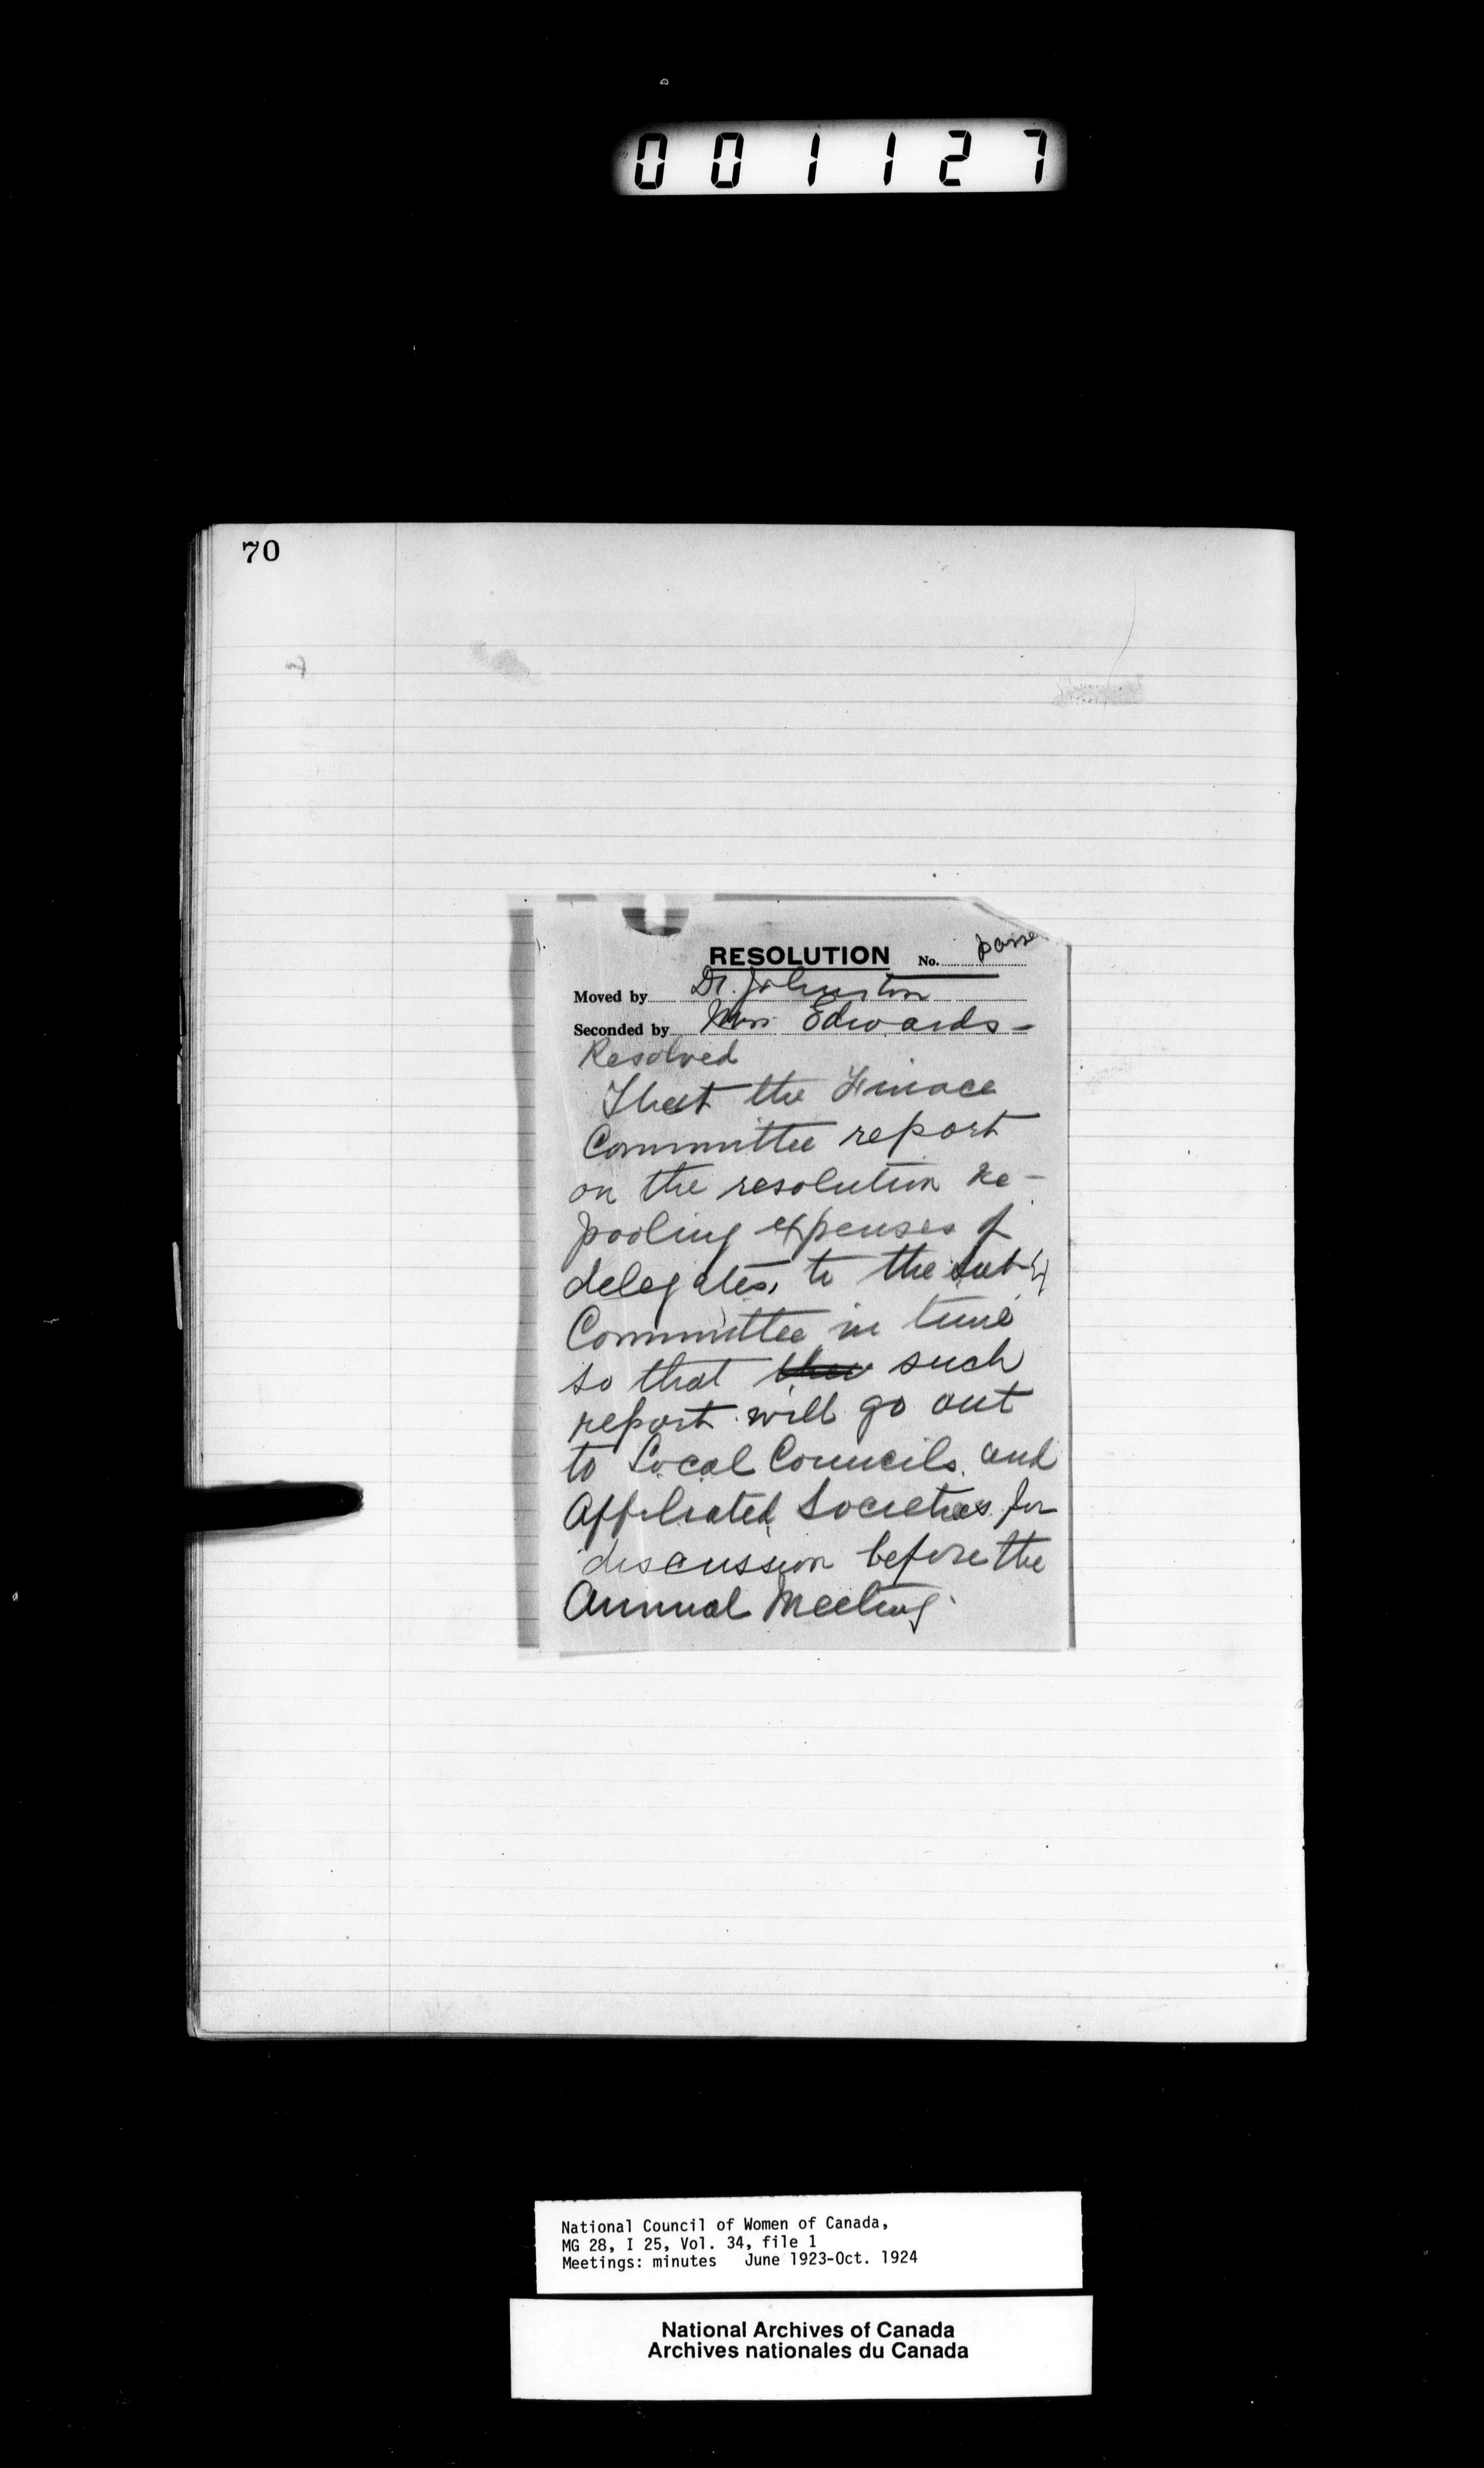 001127
70
RESOLUTION No. passe
Moved by Dr. Johnston
Seconded by Mrs. Edwards -
Resolved
That the Finace
Committee report
on the resolution re-
pooling expenses of
delegates, to the sub-
Committee in time
so that such
report will go out
to Local Councils and
Affiliated Societies for
discussion before the
Annual Meeting.
National Council of Women of Canada,
MG 28, I 25, Vol. 34, file 1
Meetings: minutes June 1923-Oct. 1924
National Archives of Canada
Archives nationales du Canada